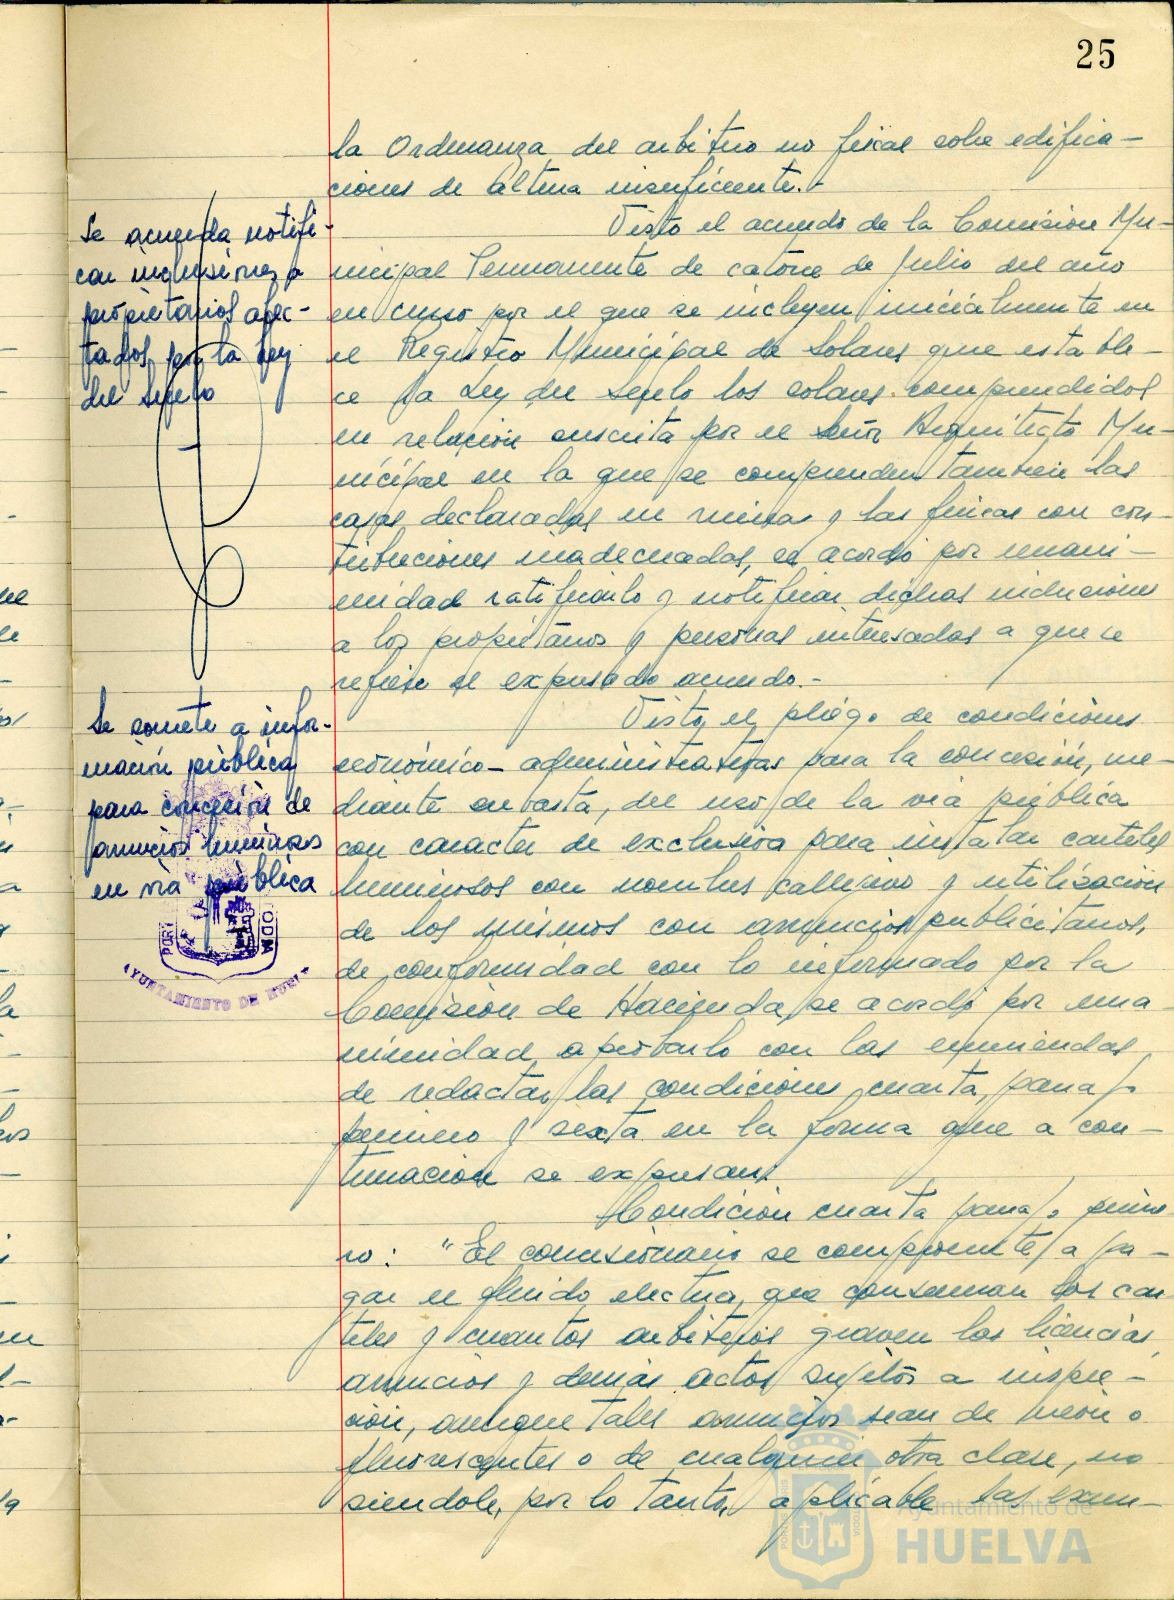 25
la Ordenanza del arbitrio no fiscal sobre edifica-
ciones de altura insuficiente.-
Se acuerda notifi-
car inclusiones a
propietarios afec-
tados por la Ley
del Suelo
Visto el acuerdo de la Comisión Mu-
nicipal Permanente de catorce de Julio del año
en curso por el que se incluyen inicialmente en
el Registro Municipal de Solares que estable-
ce la Ley del Suelo los solares comprendidos
en relación suscrita por el Señor Arquitecto Mu-
nicipal en la que se comprenden también las
casas declaradas en ruinas y las fincas con con-
tribuciones inadecuadas, se acordó por unani-
midad ratificarlo y notificar dichas inclusiones
a los propietarios y personas interesadas a que se
refiere el expresado acuerdo.-
Se somete a infor-
mación pública
para concesión de
anuncios luminosos
en vía pública
AYUNTAMIENTO DE HUELVA
Visto el pliego de condiciones
económico-administrativas para la concesión, me-
diante subasta, del uso de la vía pública
con caracter de exclusiva para instalar carteles
luminosos con nombres callejero y utilización
de los mismos con anuncios publicitarios,
de conformidad con lo informado por la
Comisión de Hacienda, se acordó por una
nimidad aprobarlo con las enmiendas
de redactar las condiciones cuarta, parraf.
primero y sexta en la forma que a con-
tinuación se expresan:
Condición cuarta parraf. prime
ro: "El concesionario se compromete a pa-
gar el fluido electrico que consuman los car
teles y cuantos arbitrios graven las licencias,
anuncios y demás actos sujetos a inspec-
ción, aunque tales anuncios sean de neón o
fluorescentes o de cualquier otra clase, no
siendole, por lo tanto, aplicable las exen-
Ayuntamiento de
HUELVA